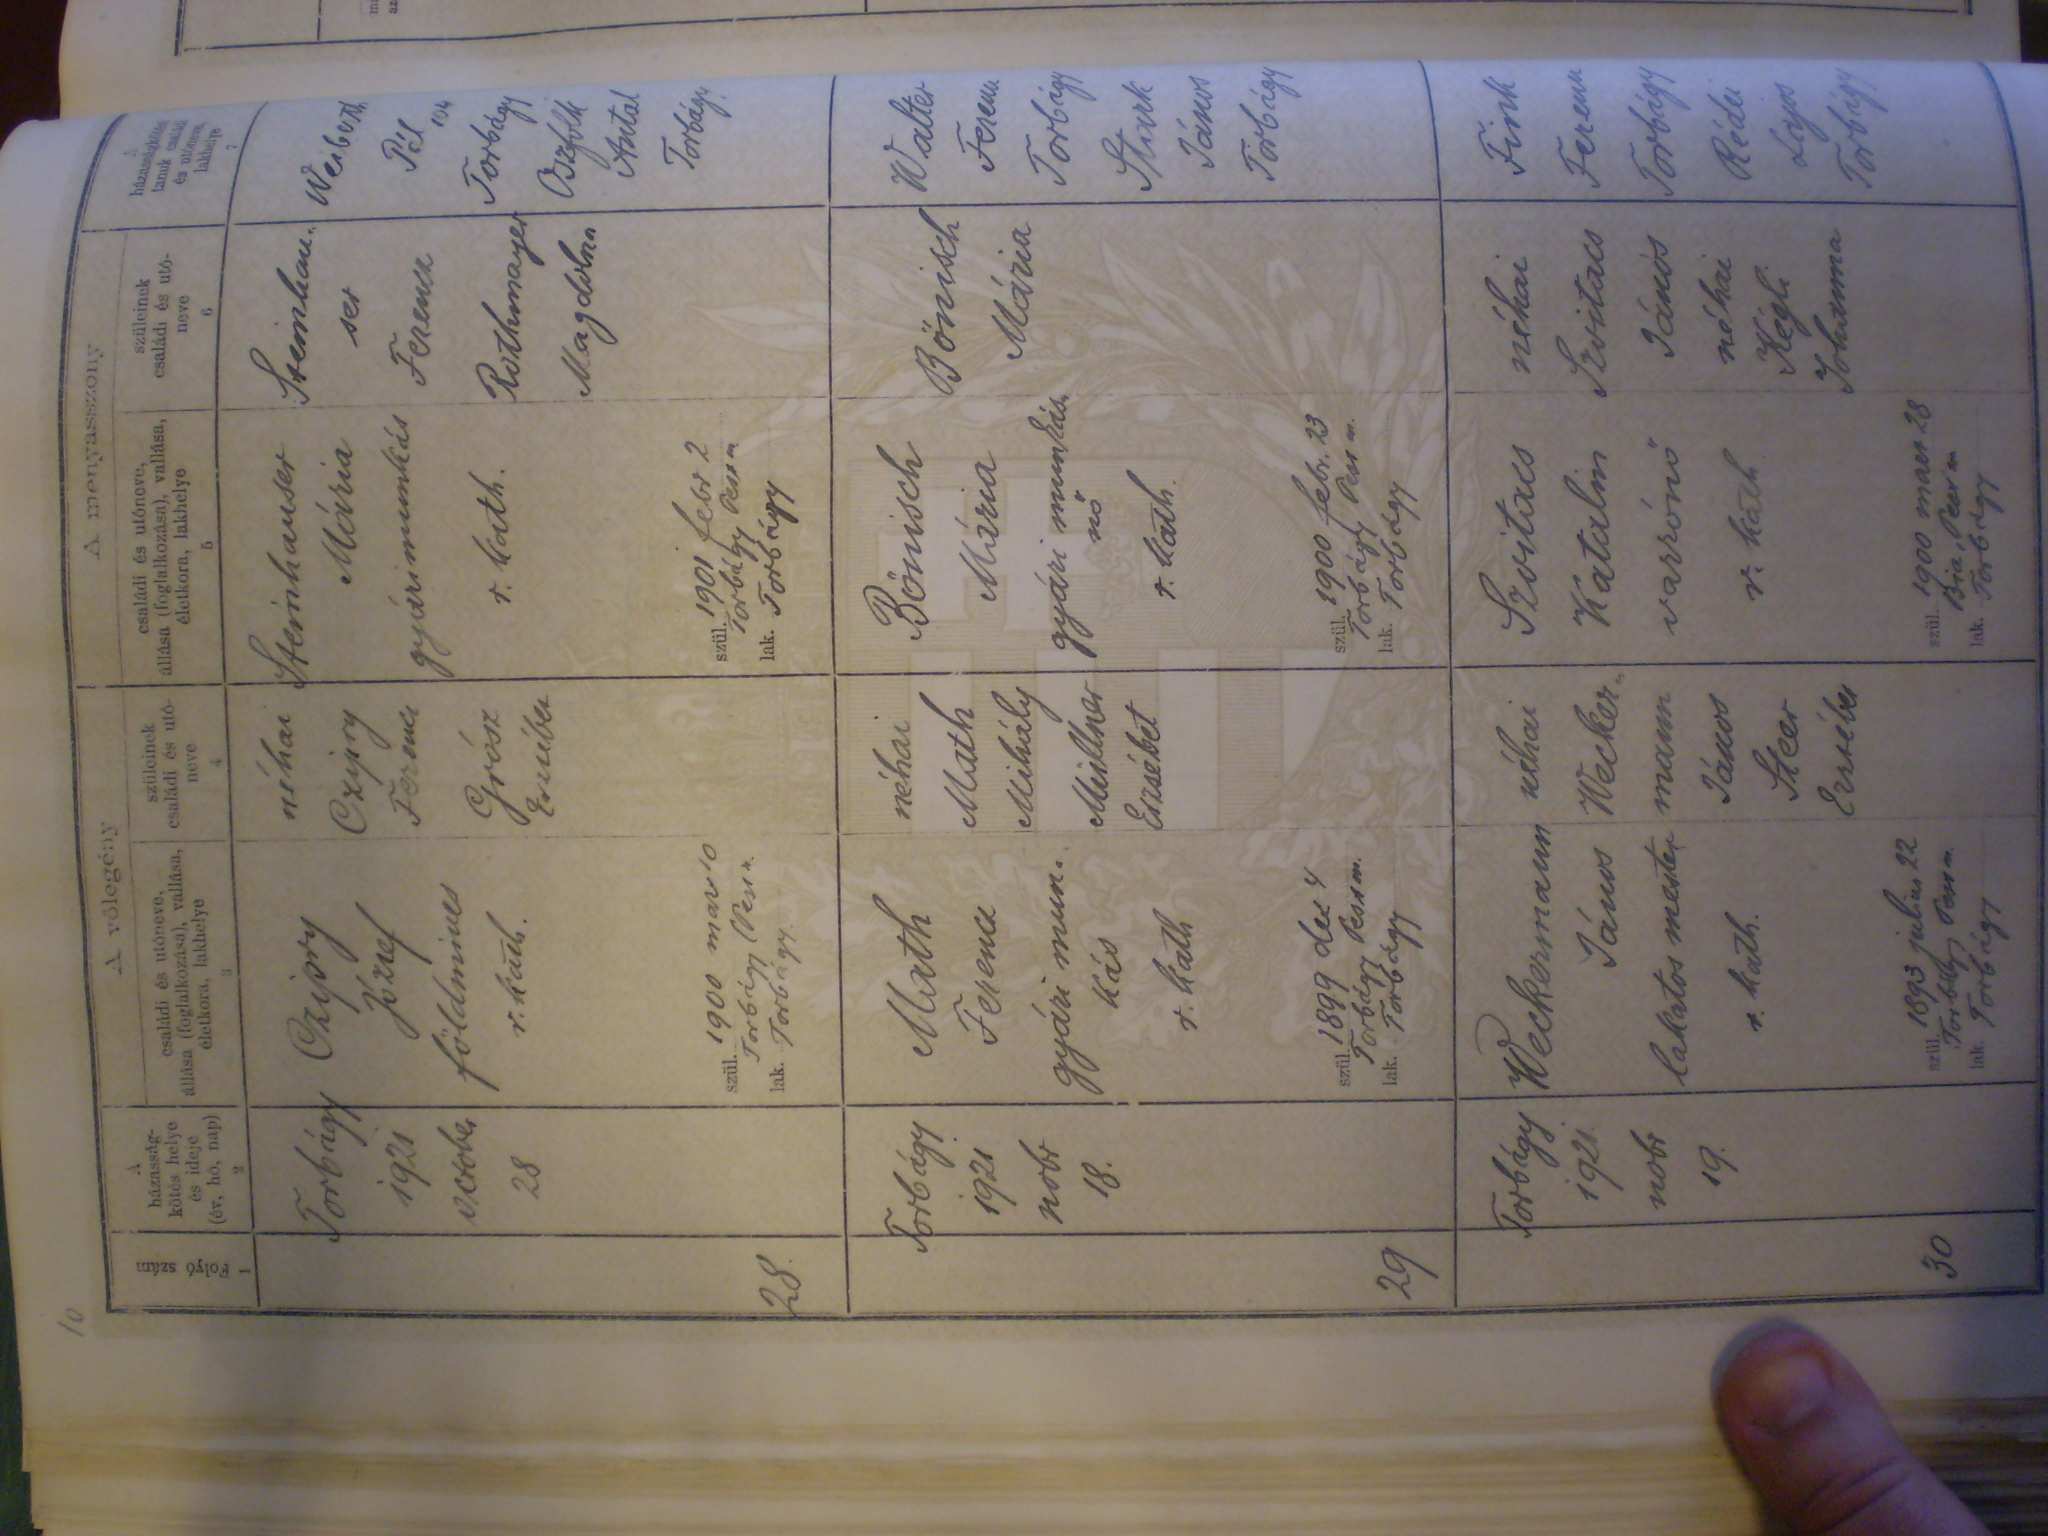 10
A vőlegény
A menyasszony
Folyó szám
1
A
házasság-
kötés helye
és ideje
(év, hó, nap)
2
családi és utóneve,
állása (foglalkozása), vallása,
életkora, lakhelye
3
szüleinek
családi és utó-
neve
4
családi és utóneve,
állása (foglalkozása), vallása,
életkora, lakhelye
5
szüleinek
családi és utó-
neve
6
A
házasságkötési
tanuk családi
és utóneve,
lakhelye
7
28.
Torbágy
1921
október
28
Czipry
József
földmives
r. kath.
szül. 1900 mar 10
Torbágy Pest m.
lak. Torbágy.
néhai
Czipry
Ferenc
Grósz
Erzsébet
Steinhauser
Mária
gyári munkás
r. kath.
szül. 1901 febr 2
Torbágy Pest m
lak. Torbágy
Steinhau-
ser
Ferencz
Rothmayer
Magdolna
Pál
Torbágy
Antal
Torbágy
29
Torbágy
1921
nobr
18.
Math
Ferencz
gyári mun-
kás
r. kath
szül. 1899 dec 4
Torbágy Pest m.
lak. Torbágy
néhai
Math
Mihály
Erzsébet
Bönisch
Mária
gyári munkás
nő
r. kath.
szül. 1900 febr. 23
Torbágy Pest m.
lak. Torbágy
Bönisch
Mária
Walter
Ferenc
Torbágy
Stark
János
Torbágy
30
Torbágy
1921.
nobr
19.
Weckermann
János
lakatos mester
r. kath.
szül. 1893 julius 22
Torbágy Pest m.
lak. Torbágy
néhai
Wecker-
mann
János
Steer
Erzsébet
Szvitacs
Katalin
varrónő
r. kath.
szül. 1900 mar 28
Bia, Pest m
lak. Torbágy
néhai
Szvitacs
János
néhai
Kégli
Johanna
Fink
Ferenc
Torbágy
Rédei
Lajos
Torbágy